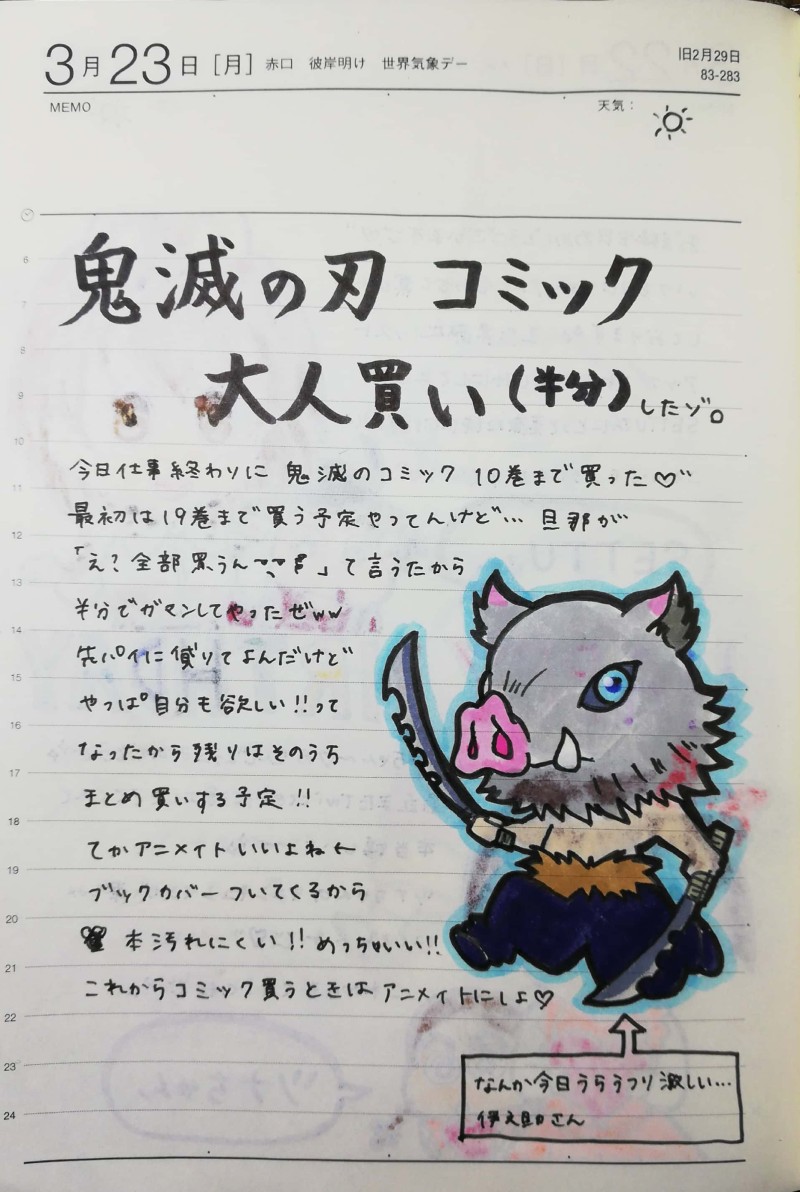 3月23日[月] 赤口 彼岸明け 世界気象デー
旧2月29日
83-283
MEMO
天気:
鬼滅の刃 コミック
大人買い(半分)したゾ。
今日仕事終わりに 鬼滅のコミック 10巻まで買った♡"
最初は19巻まで買う予定やってんけど… 旦那が
「え?全部買うん」て言うたから
半分でガマンしてやったぜww
先パイに借りてよんだけど
やっぱ自分も欲しい!!って
なったから残りはそのうち
まとめ買いする予定!!
てかアニメイトいいよね←
ブックカバーついてくるから
本汚れにくい!!めっちゃいい!!
これからコミック買うときはアニメイトにしよ♡
なんか今日うらうつり激しい…
伊之助さん
6
7
8
9
10
11
12
13
14
15
16
17
18
19
20
21
22
23
24